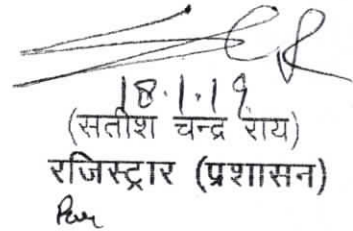 18.1.19
(सतीश चन्द्र राय)
रजिस्ट्रार (प्रशासन)